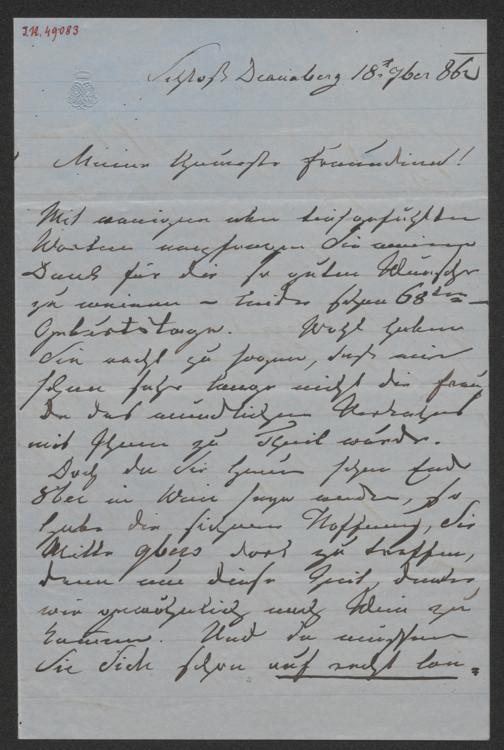 I.N. 49083
Schloß Dornaberg 18t. 9ber 862
Meine theuerste Freundinn!
Mit wenigen aber tiefgefühlten
Worten empfangen Sie meinen
Dank für die so guten Wünsche
zu meinem – leider schon 68ten –
Geburtstage. Wohl haben
Sie recht zu sagen, daß mir
schon sehr lange nicht die Freu
de des mündlichen Verkehres
mit Ihnen zu Theil wurde.
Doch da Sie heuer schon Ende
8ber in Wien seyn werden, so
habe die sichere Hoffnung, Sie
Mitte 9bers dort zu treffen,
denn um diese Zeit, denken
wir gewöhnlich nach Wien zu
kommen. Und da müssen
Sie Sich schon auf recht lan=